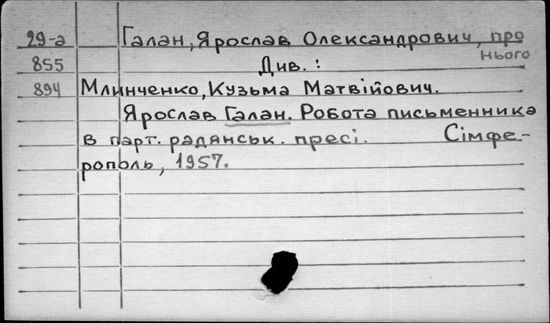 29-а Галан, Ярослав Олександрович, про нього
855 Див.:
894 Млинченко, Кузьма Матвійович.
Ярослав Галан. Робота письменника
в парт. радянськ. пресі. Сімфе-
рополь, 1957.